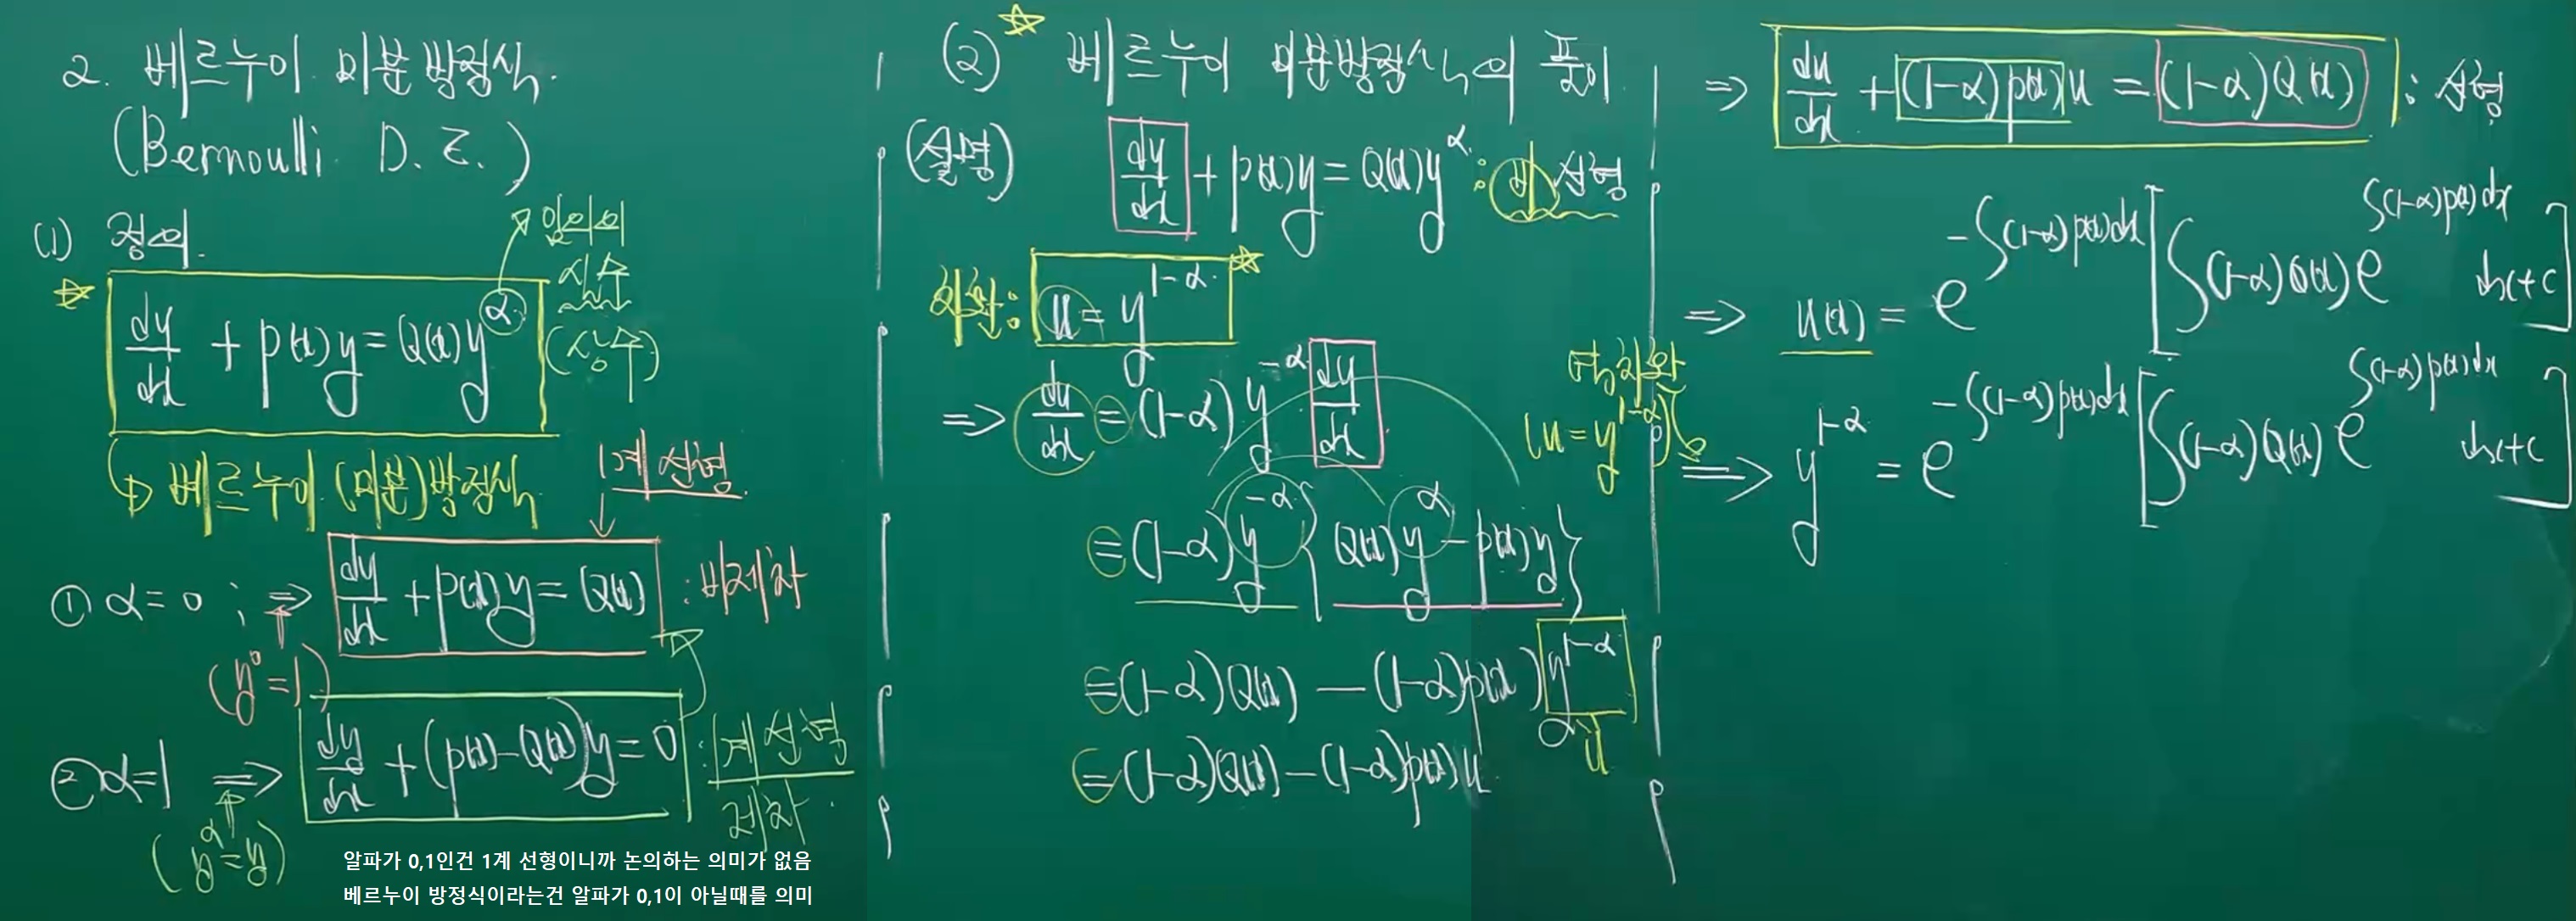 2. 베르누이 미분방정식.
(Bernoulli D. E.)
(1) 정의.
임의의
실수
(상수)
☆ dy/dx + p(x)y = Q(x)y^α
↳ 베르누이 (미분)방정식
1계 선형
① α=0 ; ⇒ dy/dx + p(x)y = Q(x) : 비제차
(y^0=1)
② α=1 ⇒ dy/dx + (p(x)-Q(x))y = 0 : 1계 선형
제차
(y^α=y)
알파가 0,1인건 1계 선형이니까 논의하는 의미가 없음
베르누이 방정식이라는건 알파가 0,1이 아닐때를 의미
(2) ☆ 베르누이 미분방정식의 풀이
(설명) dy/dx + p(x)y = Q(x)y^α : 비선형
치환: u = y^(1-α) ☆
⇒ du/dx = (1-α)y^(-α) · dy/dx
= (1-α)y^(-α) { Q(x)y^α - p(x)y }
= (1-α)Q(x) - (1-α)p(x) y^(1-α)
u
= (1-α)Q(x) - (1-α)p(x)u
⇒ du/dx + (1-α)p(x)u = (1-α)Q(x) : 선형
⇒ u(x) = e^(-∫(1-α)p(x)dx) [ ∫(1-α)Q(x) e^(∫(1-α)p(x)dx) dx+c ]
(u = y^(1-α))
⇒ y^(1-α) = e^(-∫(1-α)p(x)dx) [ ∫(1-α)Q(x) e^(∫(1-α)p(x)dx) dx+c ]